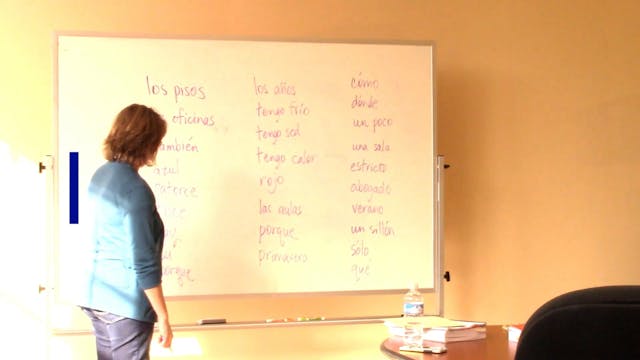 los pisos
oficinas
también
azul
catorce
porque
los años
tengo frío
tengo sed
tengo calor
rojo
las aulas
porque
primavera
cómo
dónde
un poco
una sala
estricto
abogado
verano
un sillón
sólo
qué